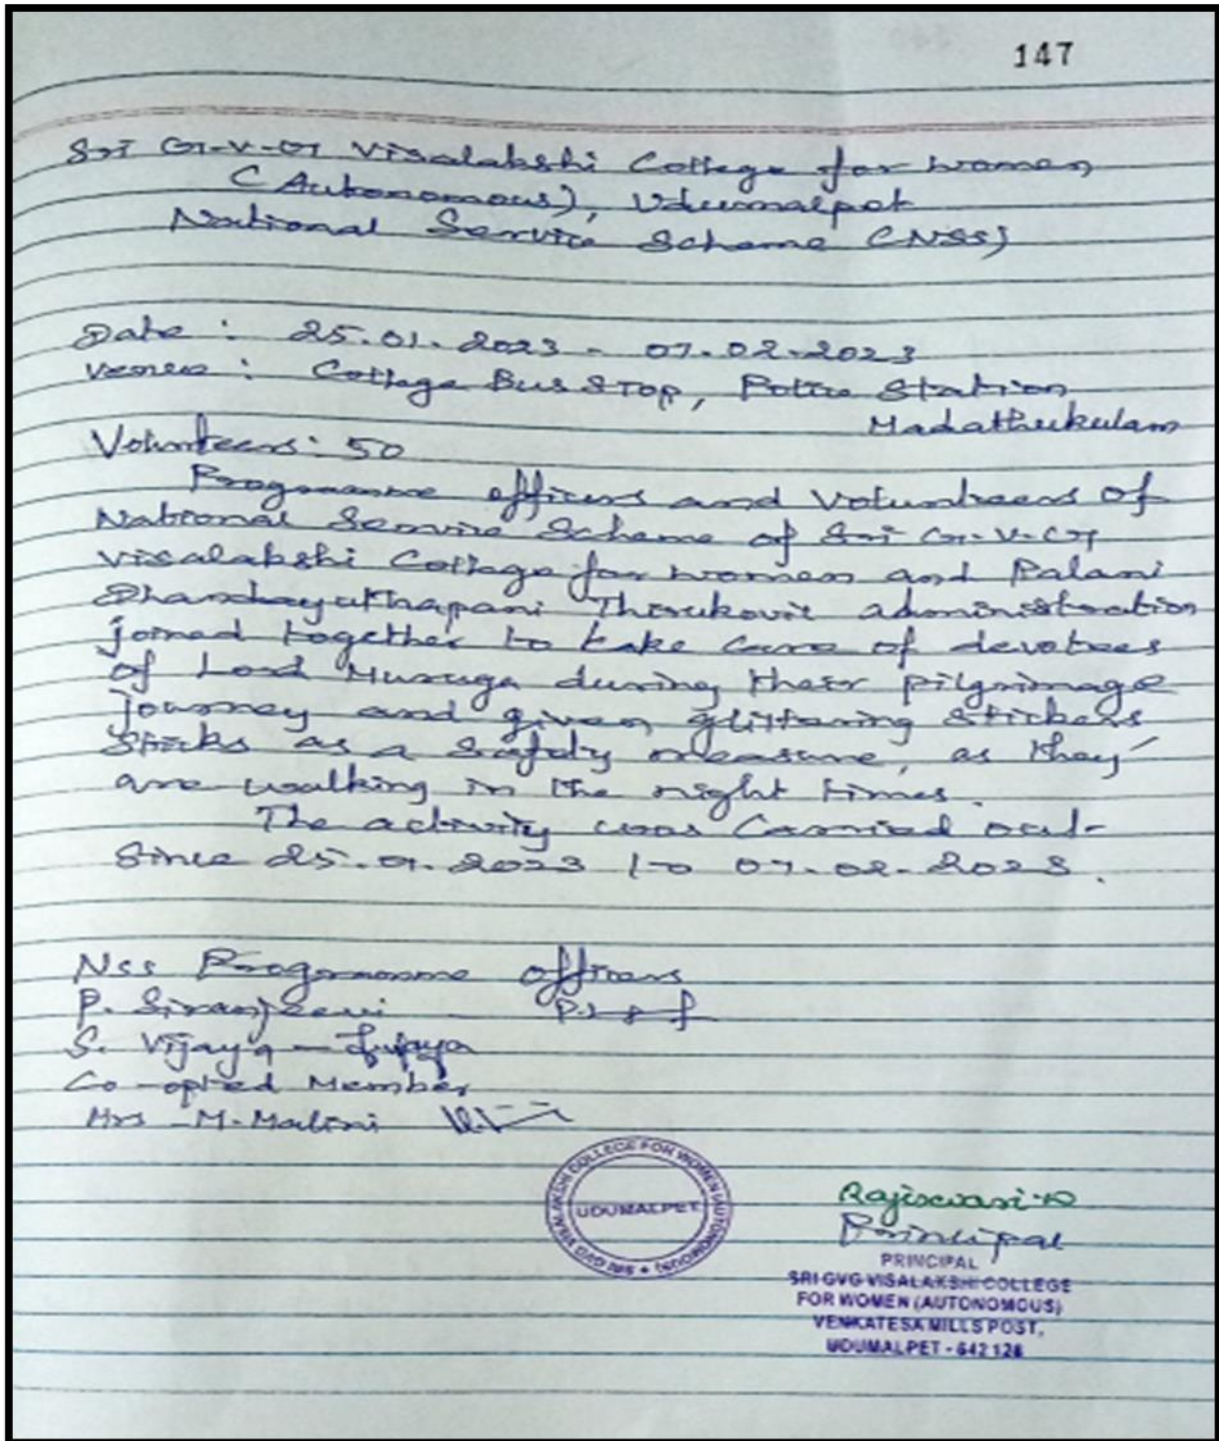 147
Sri G.V.G Visalakshi College for women
(Autonomous), Udumalpet
National Service Scheme (NSS)
Date : 25.01.2023 - 07.02.2023
Venue : College Bus Stop, Police Station
Madathukulam
Volunteers: 50
Programme officers and Volunteers of
National Service Scheme of Sri G.V.G
Visalakshi College for women and Palani
Dhandayuthapani Thirukovil administration
joined together to take care of devotees
of Lord Muruga during their pilgrimage
journey and given glittering stickers
sticks as a safety measure, as they
are walking in the night times.
The activity was carried out
since 25.01.2023 to 07.02.2023.
NSS Programme officers
P. Siranjeevi
S. Vijaya - Vijaya
Co-opted Member
Mrs. M. Malini
SRI GVG VISALAKSHI COLLEGE FOR WOMEN (AUTONOMOUS)
UDUMALPET
Rajiswari
Principal
PRINCIPAL
SRI GVG VISALAKSHI COLLEGE
FOR WOMEN (AUTONOMOUS)
VENKATESA MILLS POST,
UDUMALPET - 642 128